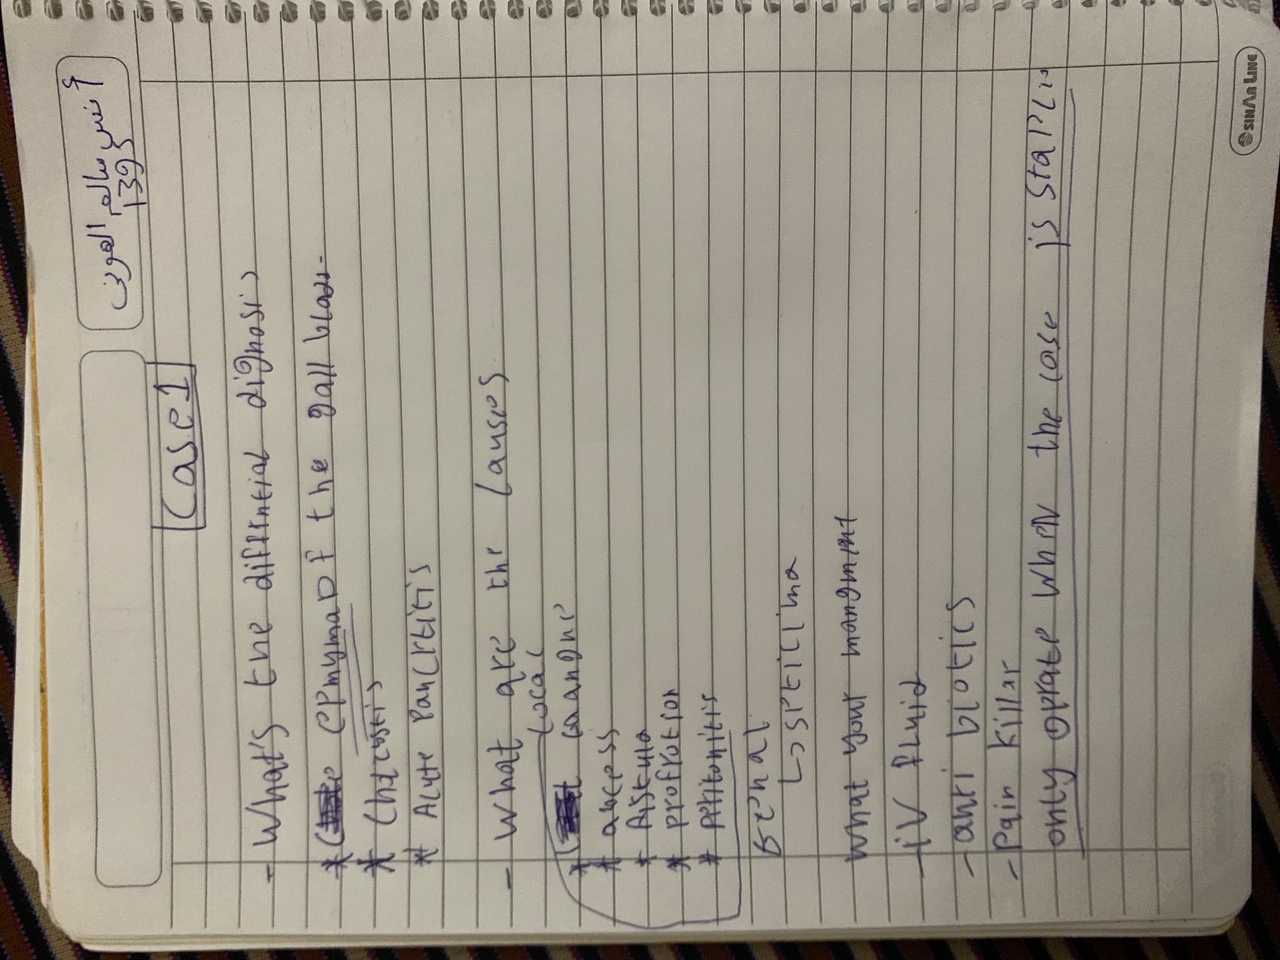 سالم
1393
Case 1
- What's the diffrntial dignosis
* Cpmyma of the gall blad
* Chtcystis
* Acute Pancrtitis
- What are the Causes
Local
gangne
* abcess
* fistula
* profrotion
* Petitonitis
↳ sptic
What your mangmnt
- iV fluid
- anti biotics
- Pain killar
only oprate when the case is stable
SINAR LINE